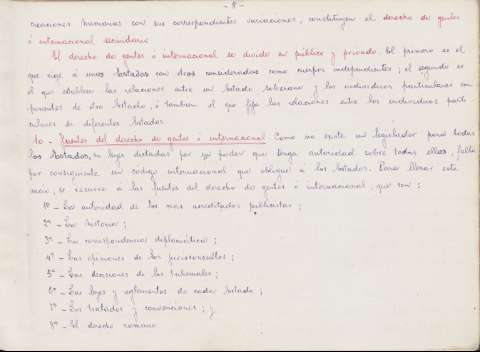 - 5 -
creaciones humanas con sus correspondientes variaciones, constituyen el derecho de gentes
é internacional secundario
El derecho de gentes é internacional se divide en público y privado. El primero es el
que rige á unos Estados con otros considerados como cuerpos independientes; el segundo es
el que establece las relaciones entre un Estado soberano y los individuos particulares com
ponentes de otro Estado, ó tambien el que fija las relaciones entre los individuos parti
culares de diferentes Estados.
10 - Fuentes del derecho de gentes é internacional Como no existe un legislador para todos
los Estados, ni leyes dictadas por un poder que tenga autoridad sobre todos ellos, falta
por consiguiente un codigo internacional que obligue á los Estados. Para llenar este
vacio, se recurre á las fuentes del derecho de gentes é internacional, que son:
1º - La autoridad de los mas acreditados publicistas;
2º - La historia;
3º - La correspondencia diplomática;
4º - Las opiniones de los jurisconsultos;
5º - Las decisiones de los tribunales;
6º - Las leyes y reglamentos de cada Estado;
7º - Los tratados y convenciones; y
8º - El derecho romano